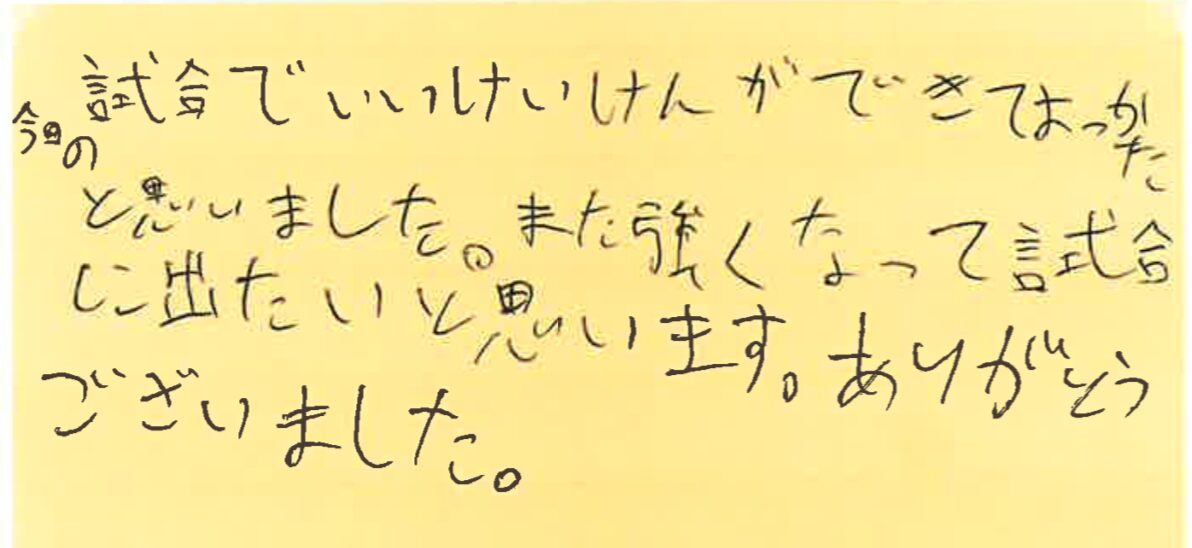 今回の試合でいいけいけんができてよかった
と思いました。また強くなって試合
に出たいと思います。ありがとう
ございました。